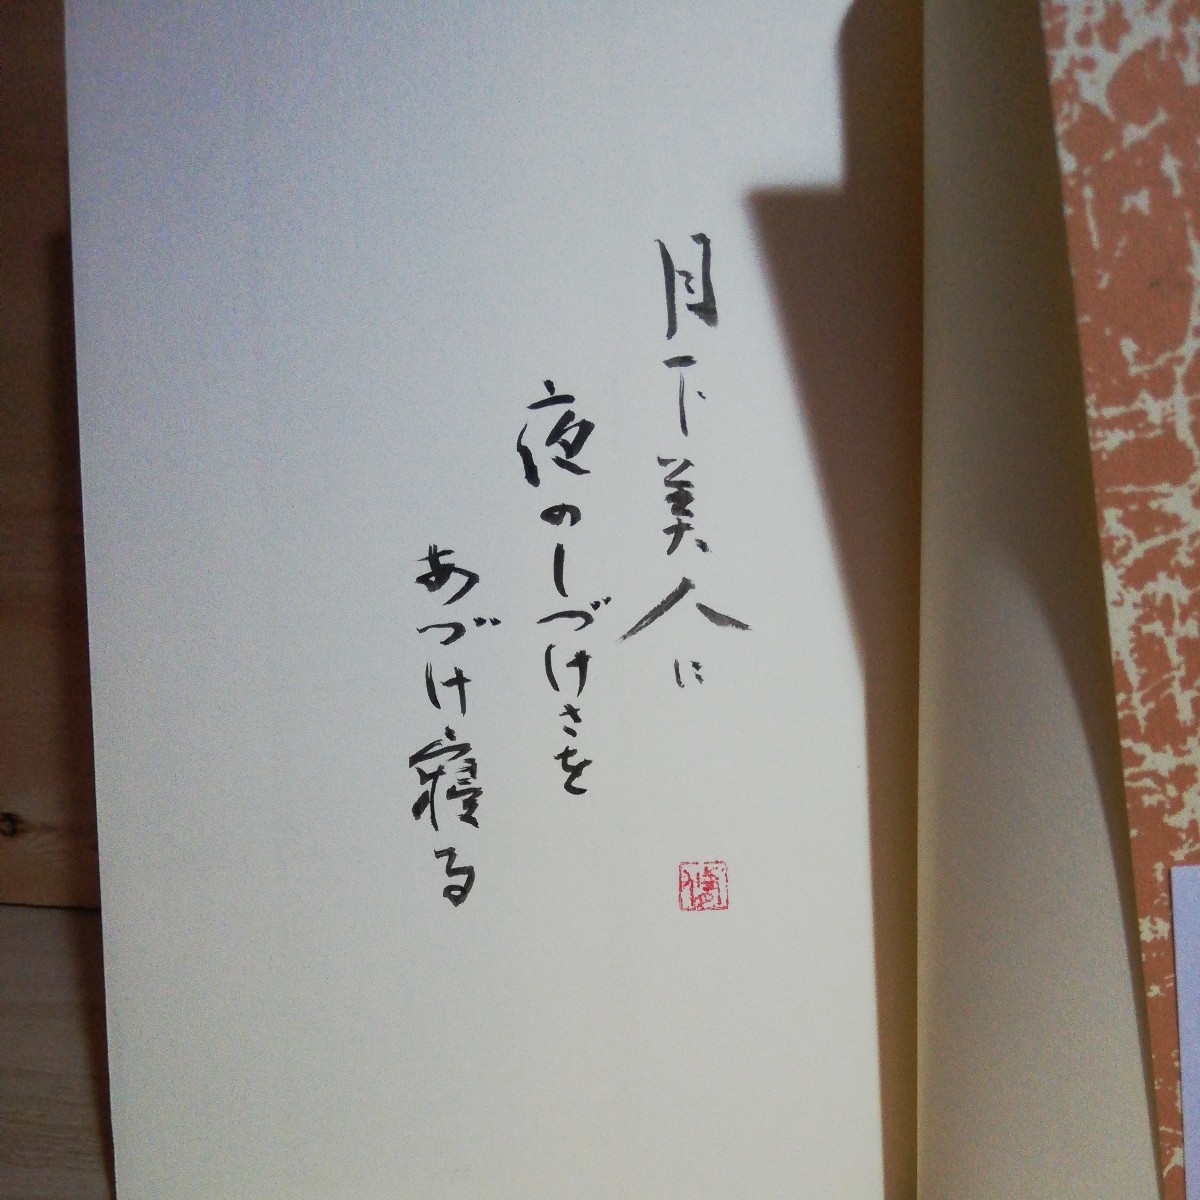 月下美人に
夜のしづけさを
あづけ寝る